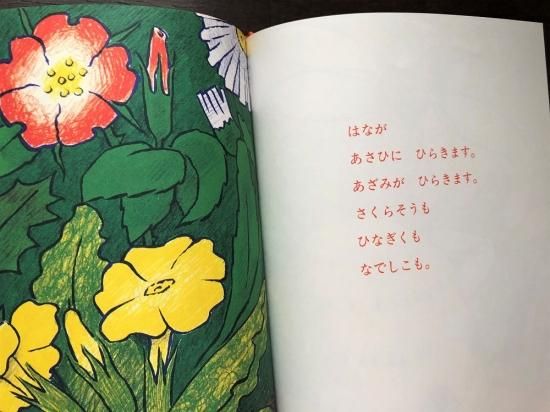 はなが
あさひに　ひらきます。
あざみが　ひらきます。
さくらそうも
ひなぎくも
なでしこも。